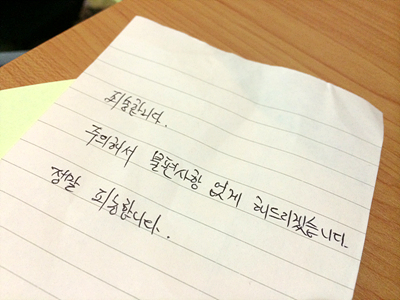 죄송합니다.
주의해서 불편사항 없게 해드리겠습니다.
정말 죄송합니다.